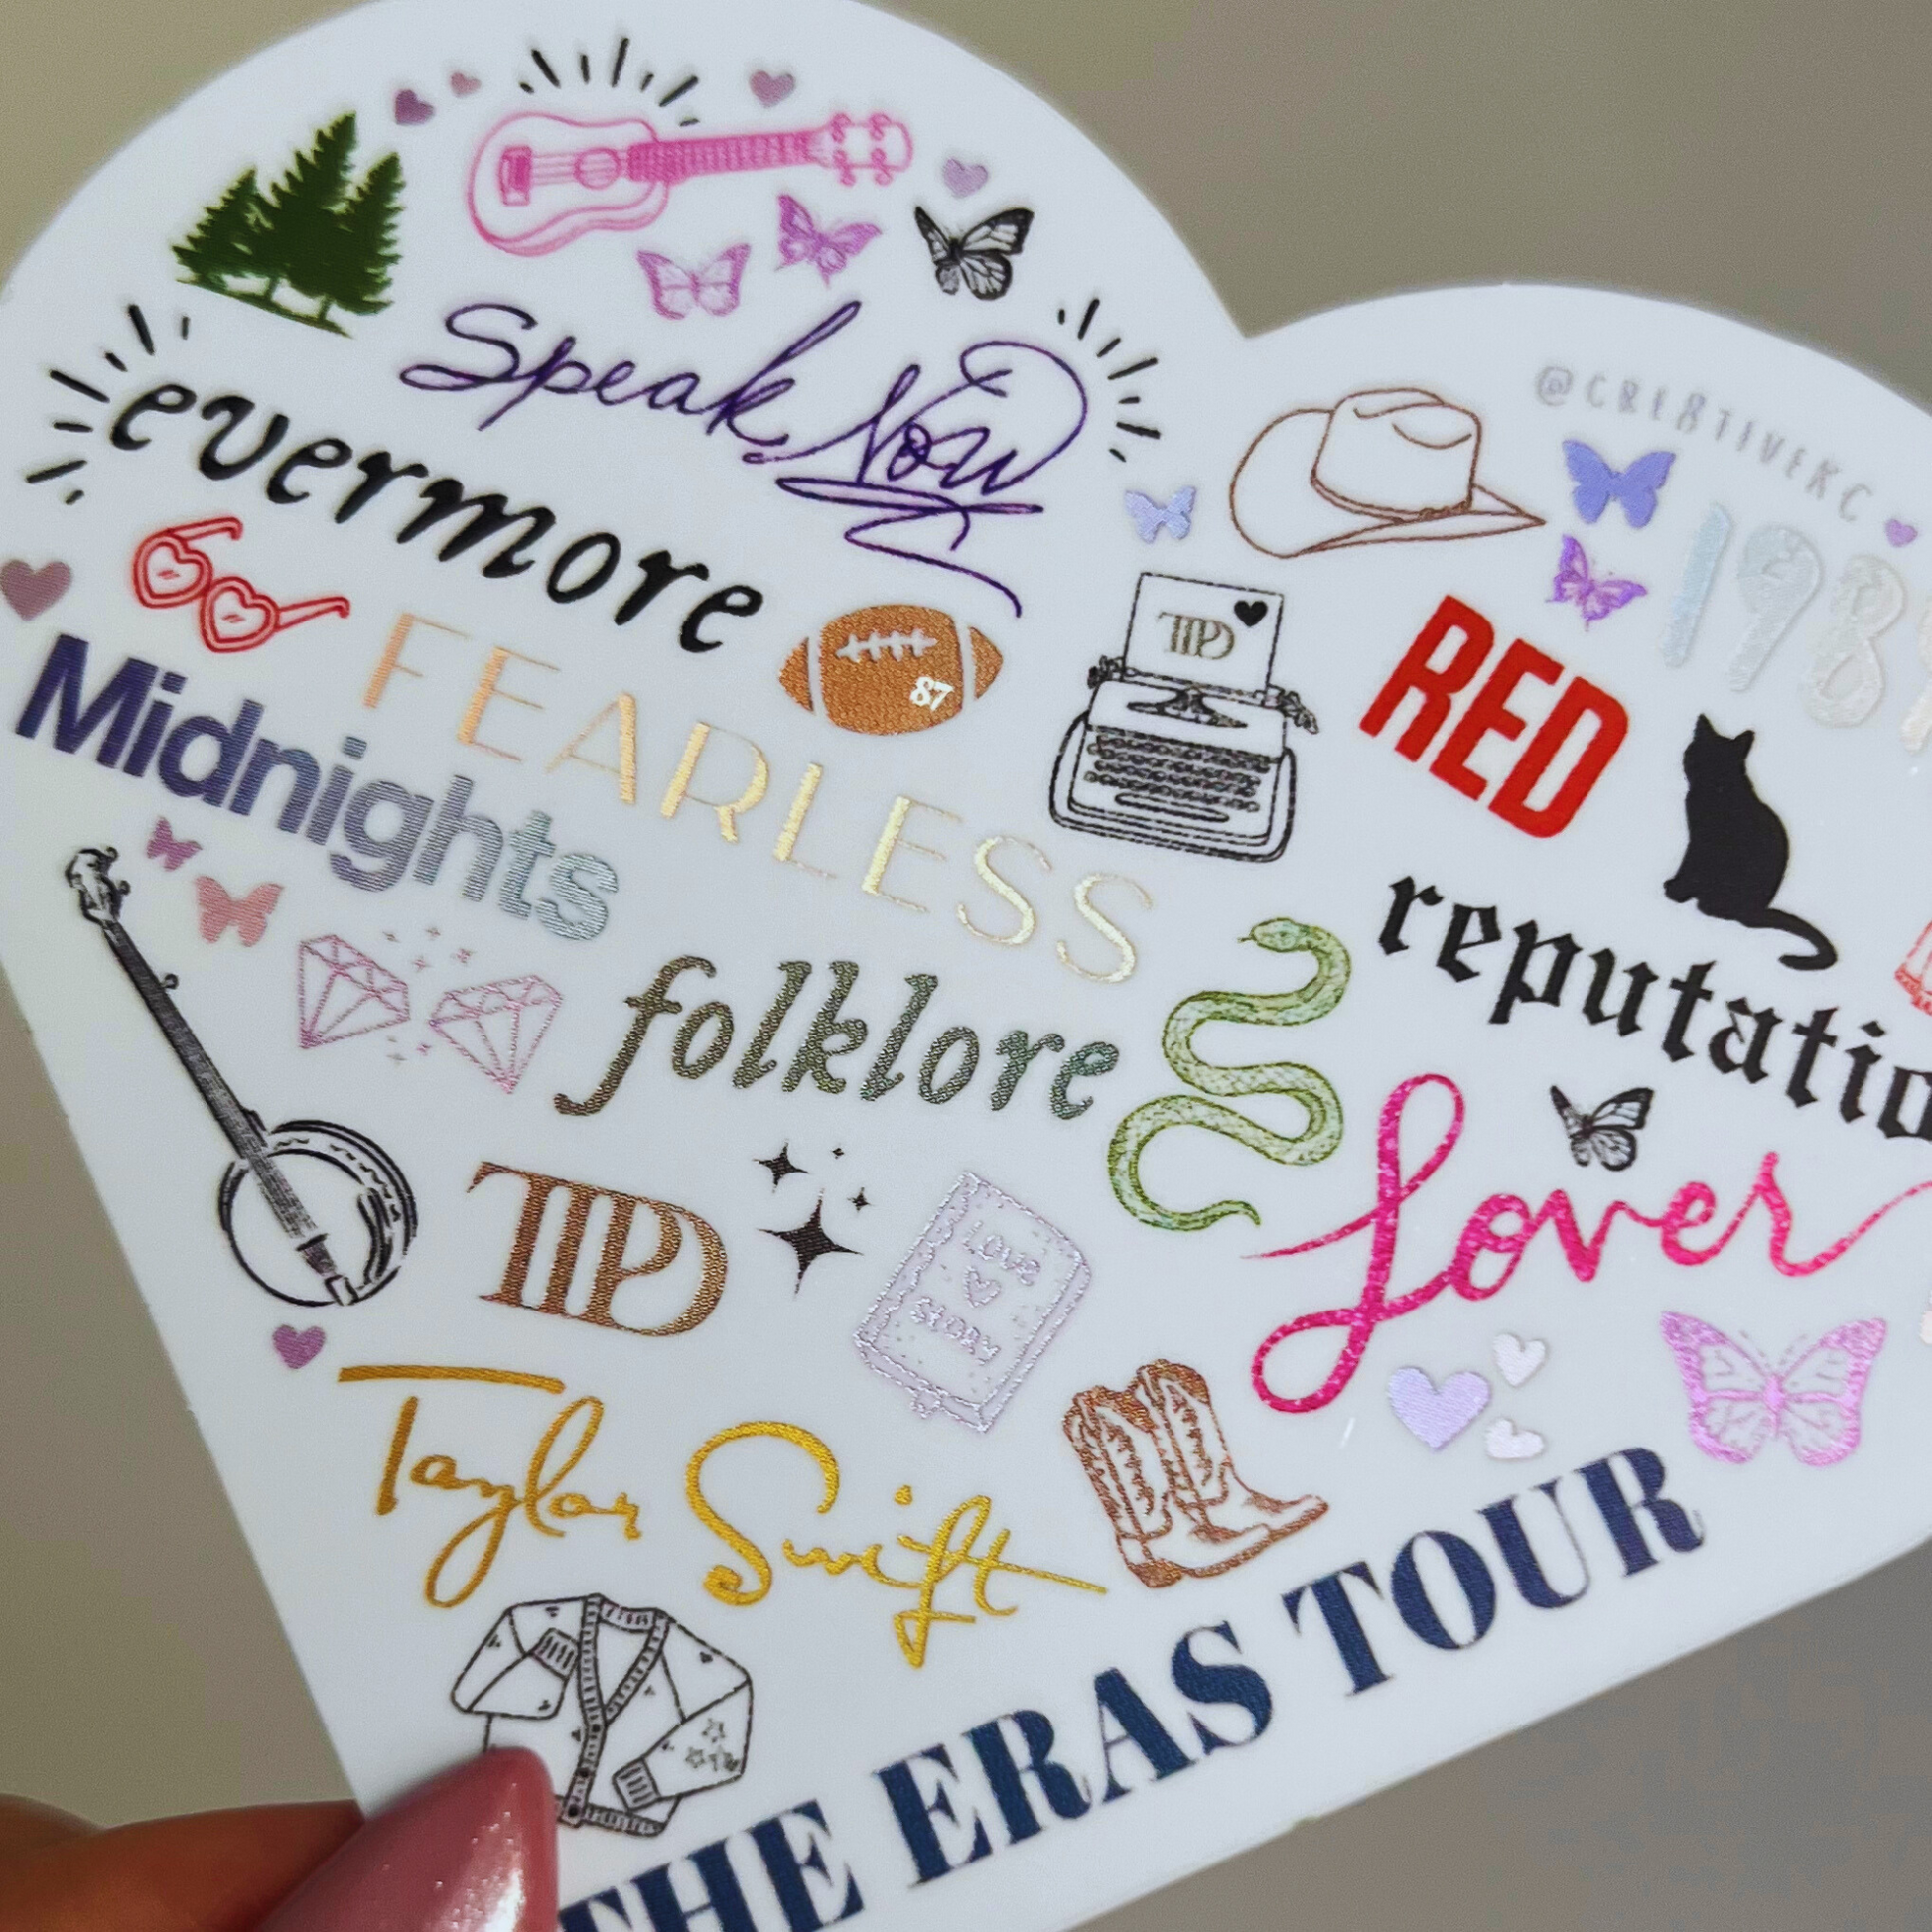 Speak Now
@CRE8TIVEKC
evermore
1989
87
TTPD
RED
FEARLESS
Midnights
reputatio
folklore
Lover
TTPD
LOVE
STORY
Taylor Swift
THE ERAS TOUR